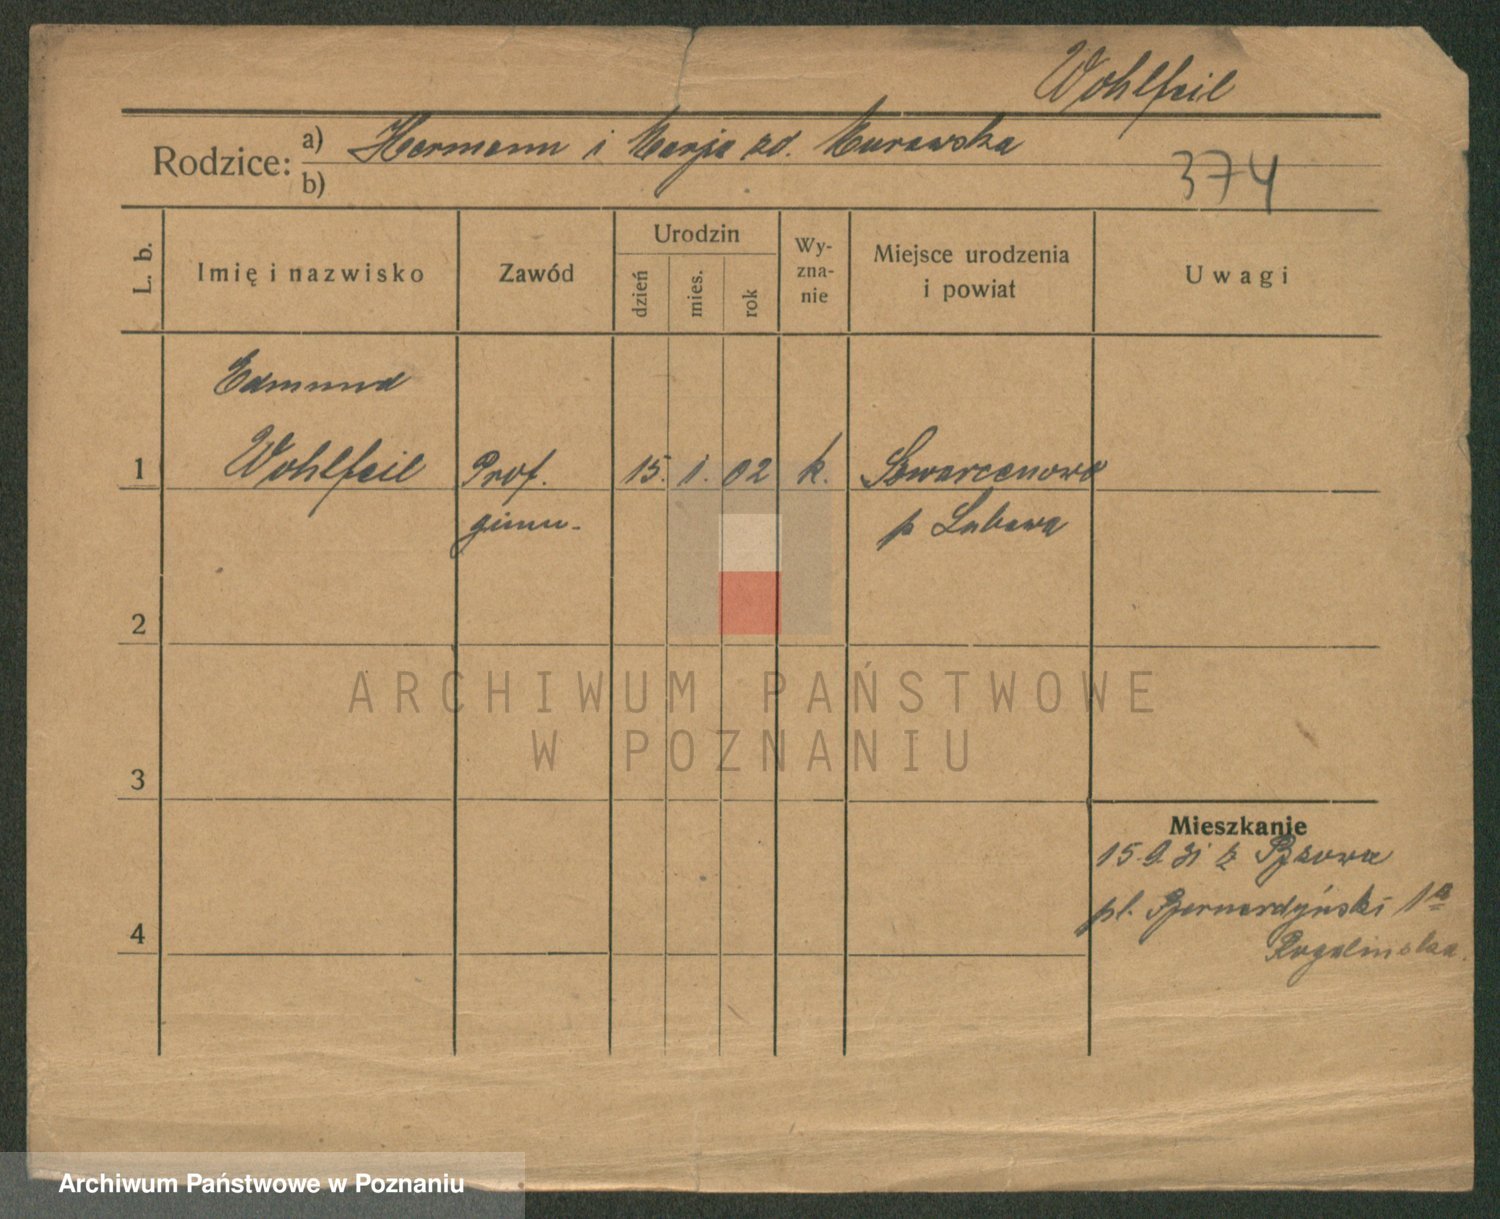 Wohlfeil
Rodzice: a) Hermann i Marja zd. Murawska
b)
374
L. b.
Imię i nazwisko
Zawód
Urodzin
dzień
mies.
rok
Wy-
zna-
nie
Miejsce urodzenia
i powiat
Uwagi
Edmund
1 Wohlfeil Prof. 15. 1. 02 k. Szwarcenowo
gimn. p Lubawa
2
ARCHIWUM PAŃSTWOWE
W POZNANIU
3
Mieszkanie
15.9.31 z
pl. Bernardyński 1a
4
Rogalińska
Archiwum Państwowe w Poznaniu